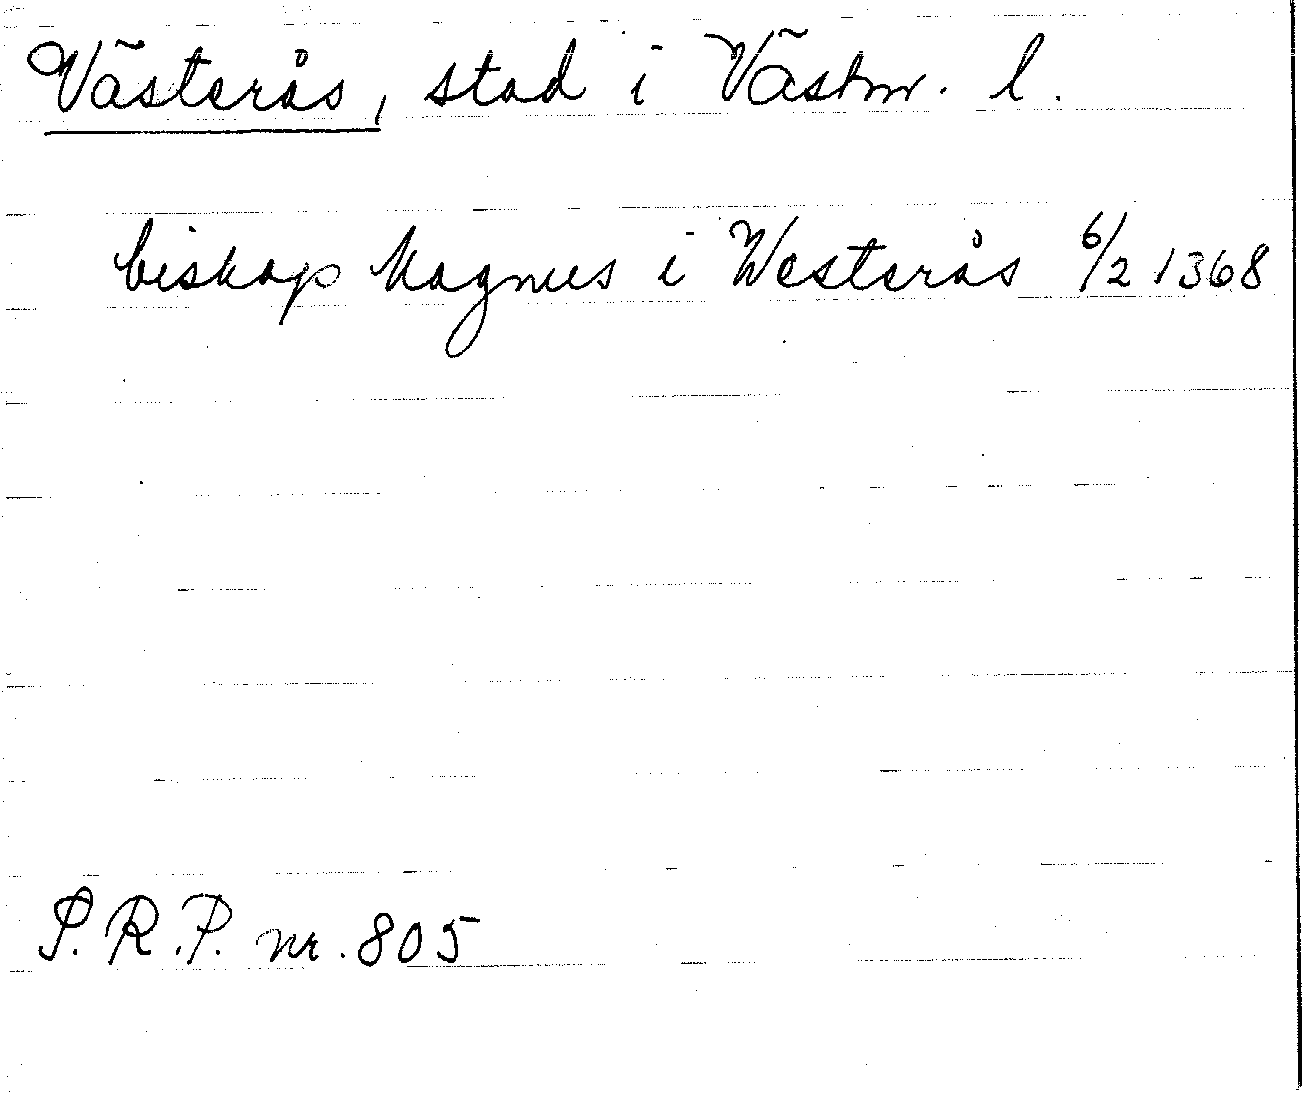 Västerås, stad i Västm. l.
biskop Magnus i Westerås 6/2 1368
S.R.P. nr. 805